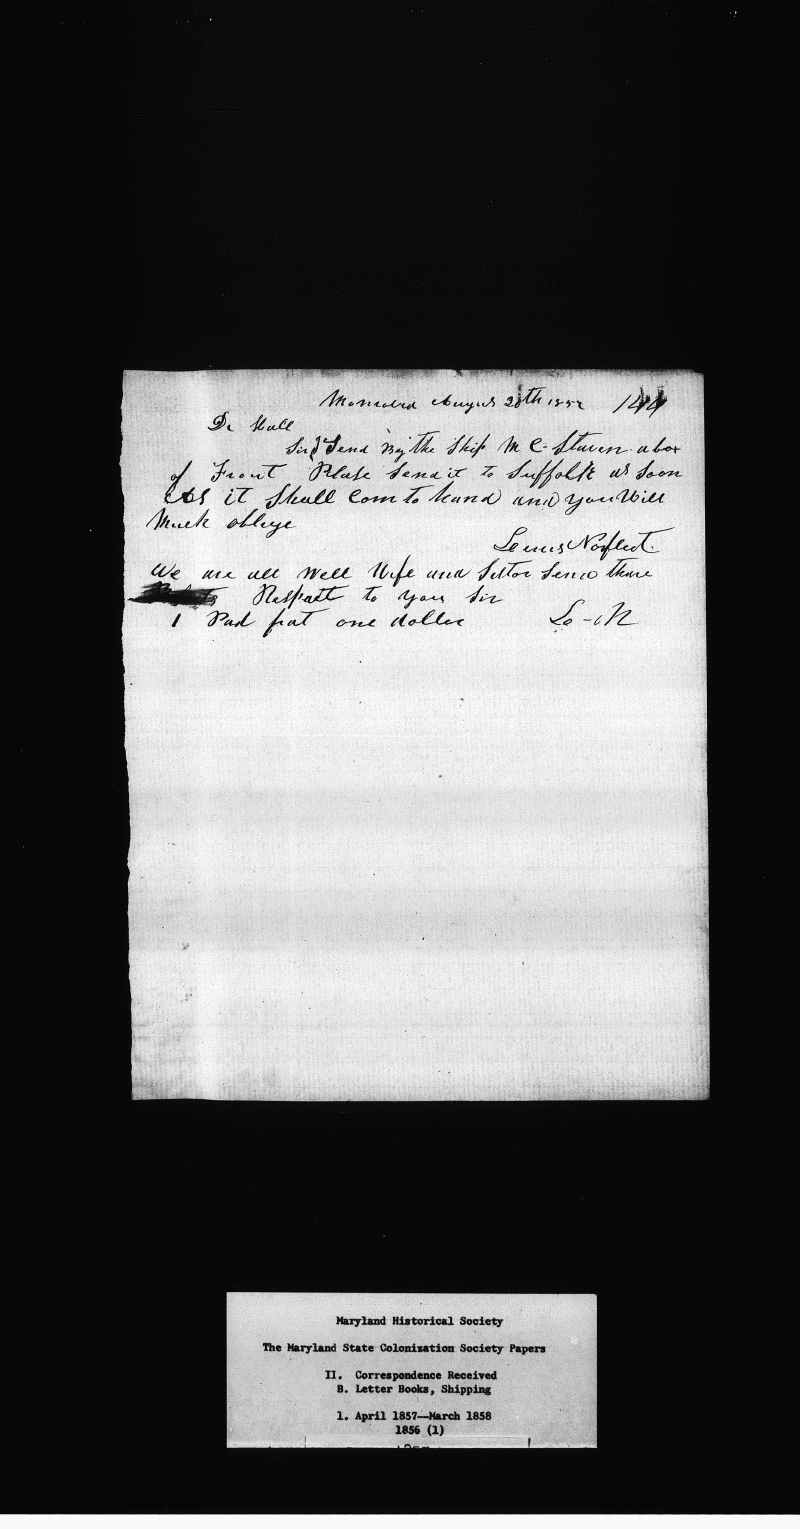 Monrovia August 28th 1857 144
Dr Hall
Sir I Send By the Ship M C Steven a box
of Fruit Please Send it to Suffolk as Soon
As it Shall Com to hand and you Will
Much oblige
Lewis Norfleet.
We are all Well Wife and Sister Send thare
Respatt to you Sir
I Pad frat one dollar L N
Maryland Historical Society
The Maryland State Colonization Society Papers
II. Correspondence Received
B. Letter Books, Shipping
1. April 1857--March 1858
1856 (1)